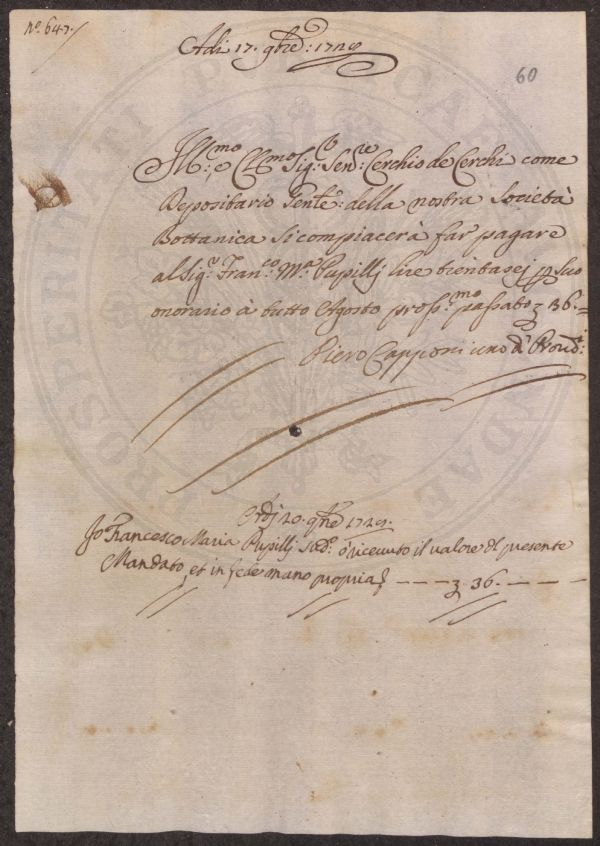 No. 647.
Adi 17. 9bre: 1729
60
Ill:mo e Cl:mo Sig:r Sen:re Cerchio de Cerchi come
Depositario Gen:le della nostra Società
Bottanica si compiacerà far pagare
al Sig:r Fran:co M:a Pupillj lire trentasej p suo
onorario à tutto Agosto pross:mo passato £ 36.=
Piero Capponi uno d Provd:i
Adj 20. 9bre 1729.
Jo Francesco Maria Pupillj sod:o ò ricevuto il valore dl presente
Mandato, et in fede mano propria £ 36.
PROSPERITATI PUBLICAE AUGENDAE